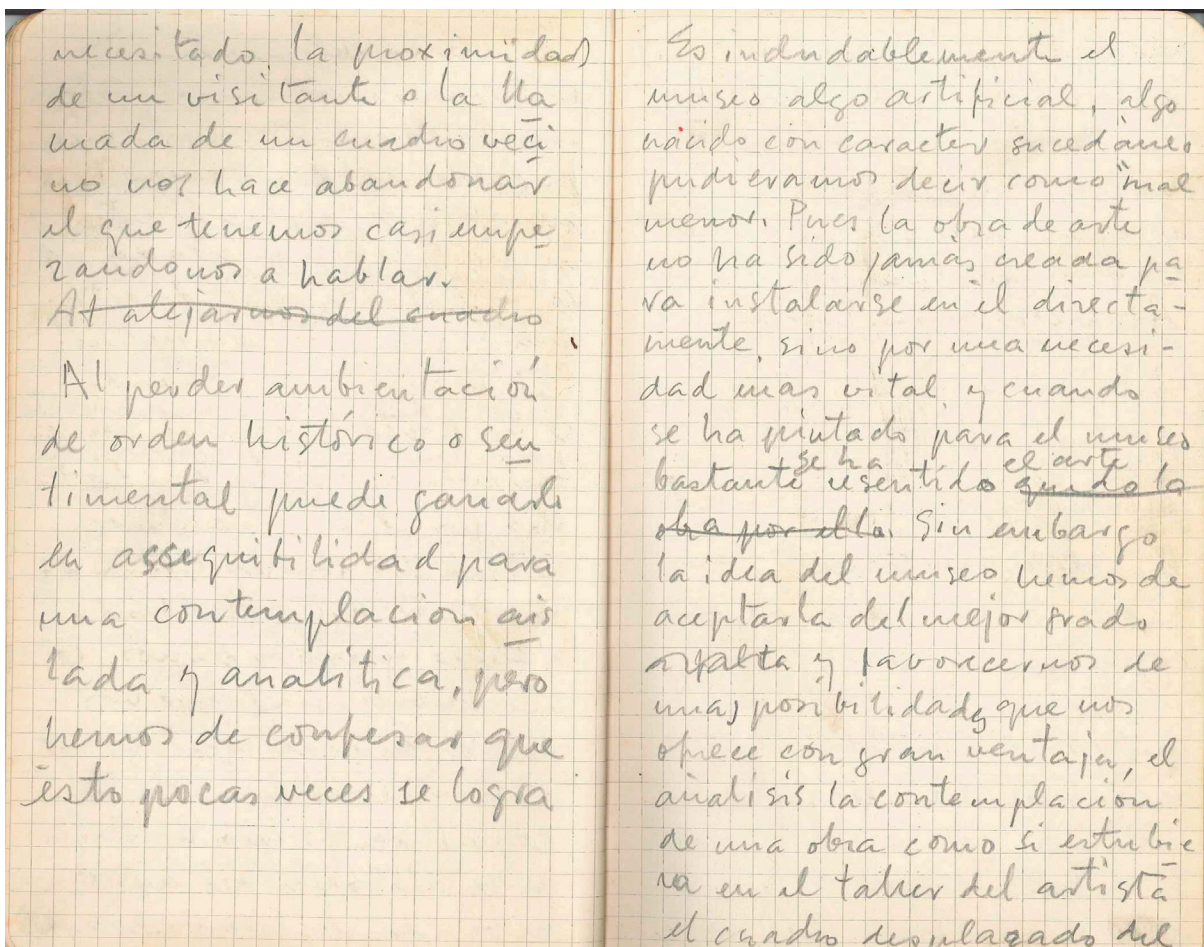 necesitado, la proximidad
de un visitante o la lla
mada de un cuadro veci
no nos hace abandonar
el que tenemos casi empe
zandonos a hablar.
At alejarnos del cuadro
Al perder ambientación
de orden histórico o sen
timental puede ganarle
en assequibilidad para
una contemplacion ais
lada y analitica, pero
hemos de confesar que
esto pocas veces se logra
Es indudablemente el
museo algo artificial, algo
nacido con caracter sucedaneo
pudieramos decir como "mal
menor. Pues la obra de arte
no ha sido jamás creada pa
ra instalarse en el directa-
mente, sino por una necesi-
dad mas vital, y cuando
se ha pintado para el museo
se ha el arte
bastante resentido la
obra por ello. Sin embargo
la idea del museo hemos de
aceptarla del mejor grado
y favorecernos de
unas posibilidades que nos
ofrece con gran ventaja, el
analisis la contemplacion
de una obra como si estubie
ra en el taller del artista
el cuadro desplazado del